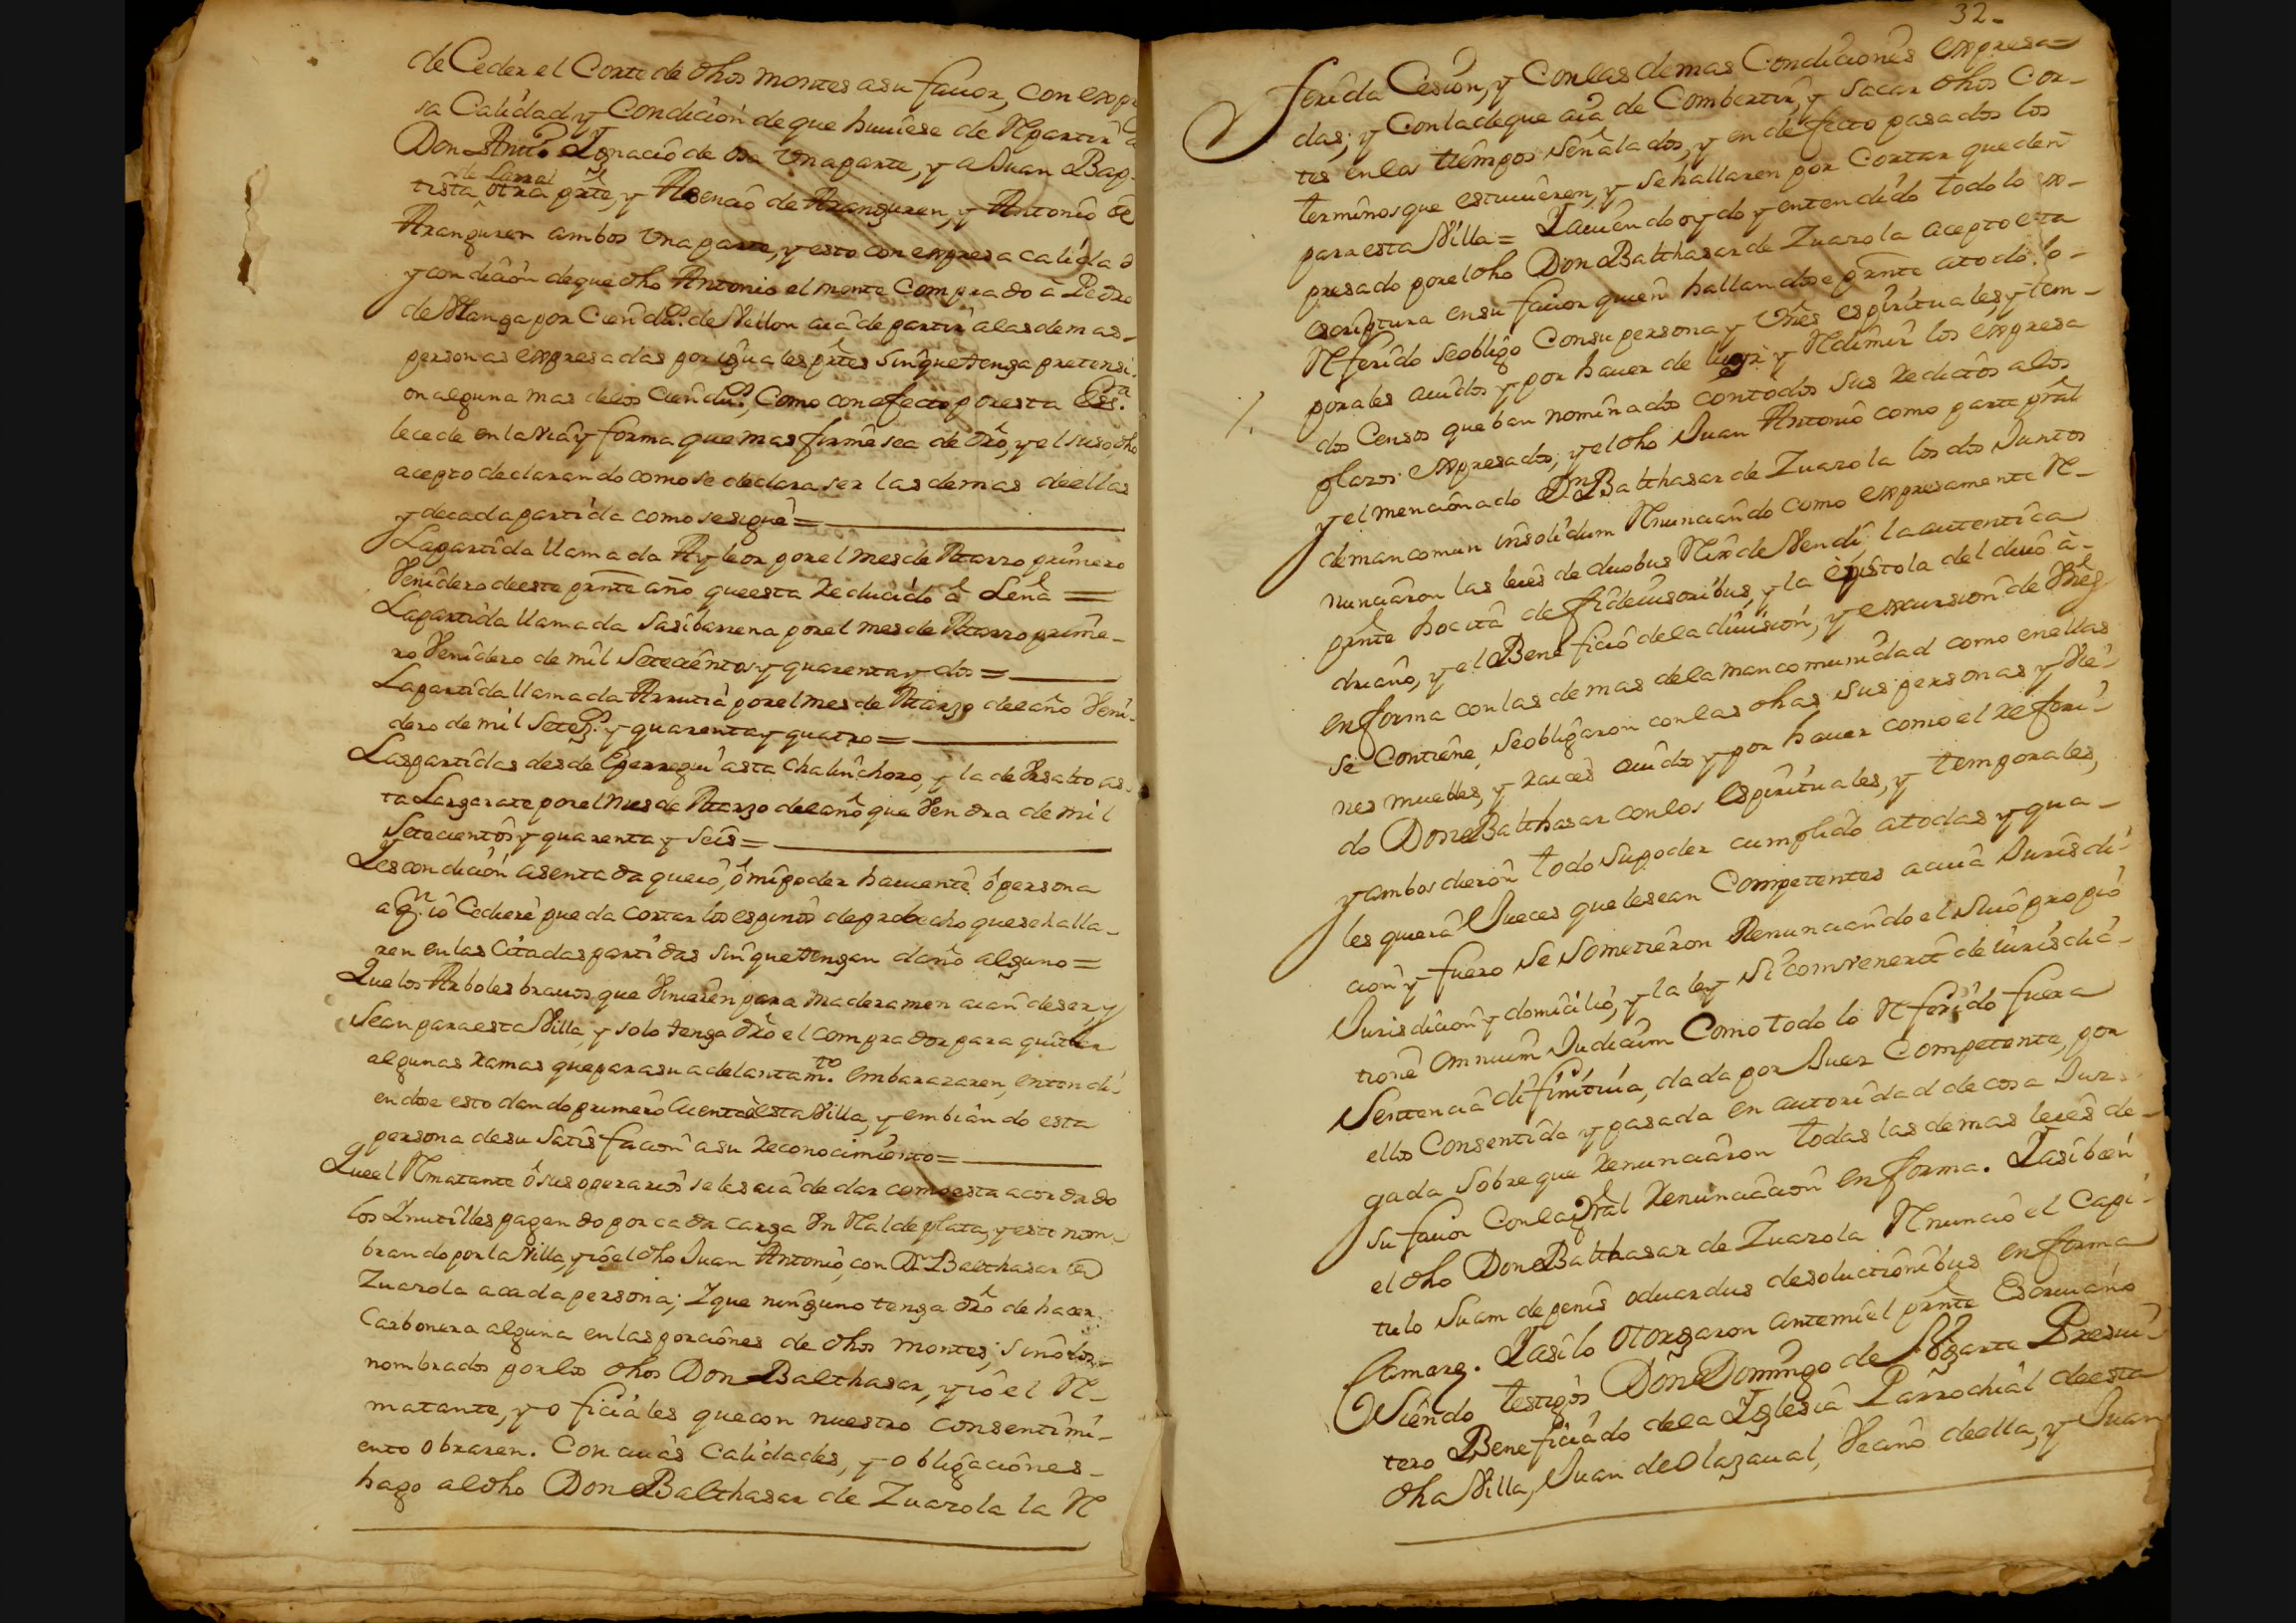 de Ceder el Corte de dhos montes asu favor, con expre
sa Calidad y Condición de que huuiese de Repartir a
Don Antto Ygnacio de Osa Vna parte, y a Juan Bap-
de Larral
tista otra prte, y Asencio de Aranguren, y Antonio de
Aranguren ambos Vna parte, y esto con expresa calidad
y condición deque dho Antonio el monte Comprado â Pedro
de por Cien du.s de Vellon aiâ de partir alas demas
personas expresadas por iguales prtes sin que tenga pretensi-
on alguna mas delos Cien du.s, Como con efecto por esta Ess.ra
le cede en la via y forma que mas firme sea de dro, y el suso dho
acepto declarando como se declara ser las demas deellas
y decada partida como sesigue =
La partida llamada Ayleor por el mes de Marzo primero
Venidero deeste prnte año queesta Reducido â Leña =
La partida llamada Sasibarrena por el mes de Marzo prime-
ro Venidero de mil Setecientos y quarenta y dos =
La partida llamada Arrutia por el mes de Marzo deel año Veni-
dero de mil Setez.s y quarenta y quatro =
Las partidas desde Egerregui asta Chalinchoro, y la de Vsalto as-
ta Largarate por el mes de Marzo deel año que Vendra de mil
Setecientos y quarenta y Seis =
Y es condición asentada que iô, ô mi poder hauiente ô persona
a q.n iô Cediere pueda cortar los espinos de probecho que se halla-
ren en las Citadas partidas sin que tengan daño alguno =
Que los Arboles brauos que Vinieren para maderamen aian de ser y
Sean para esta Villa, y solo tenga dro el comprador para quitar
algunas Ramas que para su adelantam.to embarazaren, entendi-
endose esto dando primero Cuenta â esta Villa, y embiando esta
persona de su Satisfacion a su Reconocimiento =
Que el Rmatante ô sus operarios se les aiâ de dar como esta acordado
los Ynutilles pagando por cada carga Vn Real de plata, y este nom-
brando por la Villa, y iô el dho Juan Antonio, con Dn Balthasar de
Zuarola acada persona; Y que ninguno tenga dro de hacer
Carbonera alguna en las porciones de dhos montes; sino los
nombrados por los dhos Don Balthasar, y iô el R-
matante, y oficiales que con nuestro consentimi-
ento obraren. Con cuias Calidades, y obligaciones-
hago al dho Don Balthasar de Zuarola la R
32-
ferida Cesion, y Con las demas Condiciones expresa=
das; y Con la de que aiâ de Combertir, y Sacar dhos Cor-
tes en los tiempos señalados, y en defecto pasados los
terminos que estuuieren, y se hallaren por Cortar queden
para esta Villa = Y auiendo oydo y entendido todo lo ex-
presado por el dho Don Balthasar de Zuarola acepto esta
escriptura en su fauor quien hallandose prnte atodo lo
Referido se obligo Con su persona y Vnes espirituales, y tem-
porales auidos y por hauer de luyr y Redimir los expresa
dos Censos que ban nominados con todos sus Reditos alos
plazos expresados; y el dho Juan Antonio como parte prâl
y el mencionado Dn Balthasar de Zuarola los dos Juntos
de mancomun insolidum Rnunciando como expresamente R-
nunciaron las leies de duobus Rex de Vendi, la autentica
prnte hocita de fideiusoribus, y la Epistola del diuô â-
driano, y el Beneficio dela diuision, y excursion de Vnês
en forma con las demas dela mancomunidad como en ellas
se Contiene, se obligaron con las dhas sus personas y Vie-
nes muebles, y Raices auidos y por hauer como el Referi-
do Don Balthasar con los Espirituales, y temporales,
y ambos dieron todo su poder cumplido atodas y qua-
les quierâ Jueces que lesean Competentes acuia Jurisdi-
cion y fuero se Sometieron Renunciando el Suiô propio
Jurisdicion y domicilio, y la ley Si comvenerit de iurisdic-
tione omnium Judicum Como todo lo Referido fuera
Sentencia difinitiua, dada por Juez Competente, por
ellos Consentida y pasada en autoridad de cosa Juz-
gada Sobre que Renunciaron todas las demas leies de-
su fauor Con la gral Renunciacion en forma. Y asi bien
el dho Don Balthasar de Zuarola Rnuncio el Capi-
tulo Suam de penis oduardus desolucionibus en forma
Camarg. Y asi lo Otorgaron ante mi el prnte Escriuano
Siendo testigos Don Domingo de Vgarte Presui-
tero Beneficiado dela Yglesia Parrochial deesta
dha Villa, Juan de Olazaual, Vecino deella, y Juan